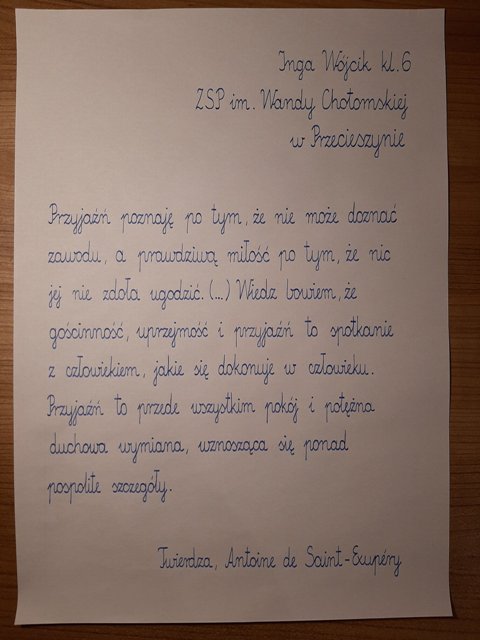 Inga Wójcik kl. 6
ZSP im. Wandy Chotomskiej
w Przecieszynie
Przyjaźń poznaję po tym, że nie może doznać
zawodu, a prawdziwą miłość po tym, że nic
jej nie zdoła ugodzić. (...) Wiedz bowiem, że
gościnność, uprzejmość i przyjaźń to spotkanie
z człowiekiem, jakie się dokonuje w człowieku.
Przyjaźń to przede wszystkim pokój i potężna
duchowa wymiana, wznosząca się ponad
pospolite szczegóły.
Twierdza, Antoine de Saint-Exupéry